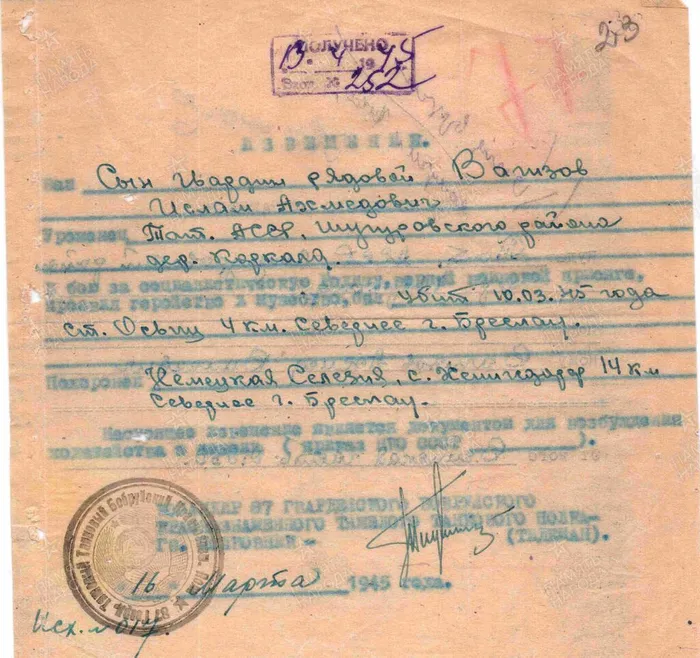 23
ПОЛУЧЕНО
13 4 1945
Вход. № 252
77
ИЗВЕЩЕНИЕ.
Ваш Сын гвардии рядовой Вагизов
Ислам Ахмедович
Уроженец Тат. АССР, Шугуровского района
дер. Каркала.
В бою за социалистическую Родину, верный воинской присяге,
проявив геройство и мужество, был убит 10.03.45 года
4 км. Севернее г. Бреслау.
Похоронен Немецкая Селезия, с. 14 км
Севернее г. Бреслау.
Настоящее извещение является документом для возбуждения
ходатайства о пенсии ( приказ НКО СССР ).
КОМАНДИР 87 ГВАРДЕЙСКОГО
ТЯЖЕЛОГО ТАНКОВОГО ПОЛКА-
ГВ. ПОЛКОВНИК - (ГАЛКИАН).
16 Марта 1945 года.
Исх. №